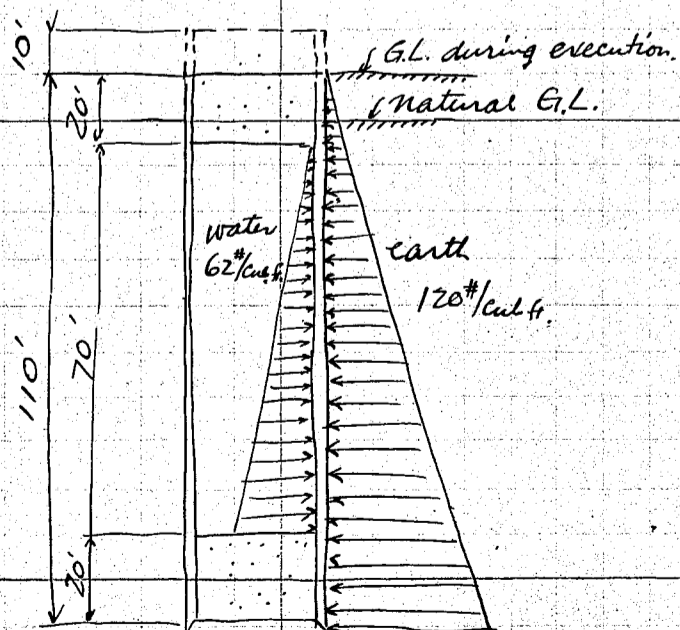 10'
G.L. during execution.
natural G.L.
20'
water
62#/cub.ft.
earth
120#/cub ft.
70'
110'
20'